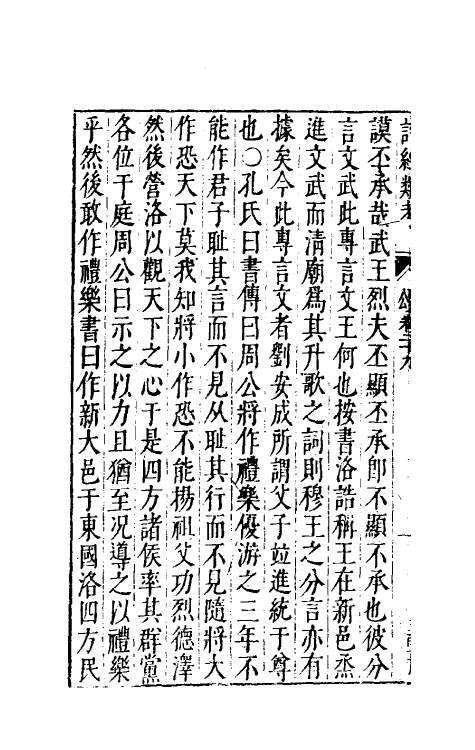 詩經類考 頌卷二十九
謨丕承哉武王烈夫丕顯丕承卽不顯不承也彼分
言文武此專言文王何也按書洛誥稱王在新邑烝
進文武而清廟爲其升歌之詞則穆王之分言亦有
據矣今此專言文者劉安成所謂父子竝進統于尊
也○孔氏曰書傳曰周公將作禮樂優游之三年不
能作君子耻其言而不見从耻其行而不見隨將大
作恐天下莫我知將小作恐不能揚祖父功烈德澤
然後營洛以觀天下之心于是四方諸侯率其群黨
各位于庭周公曰示之以力且猶至况導之以禮樂
乎然後敢作禮樂書曰作新大邑于東國洛四方民